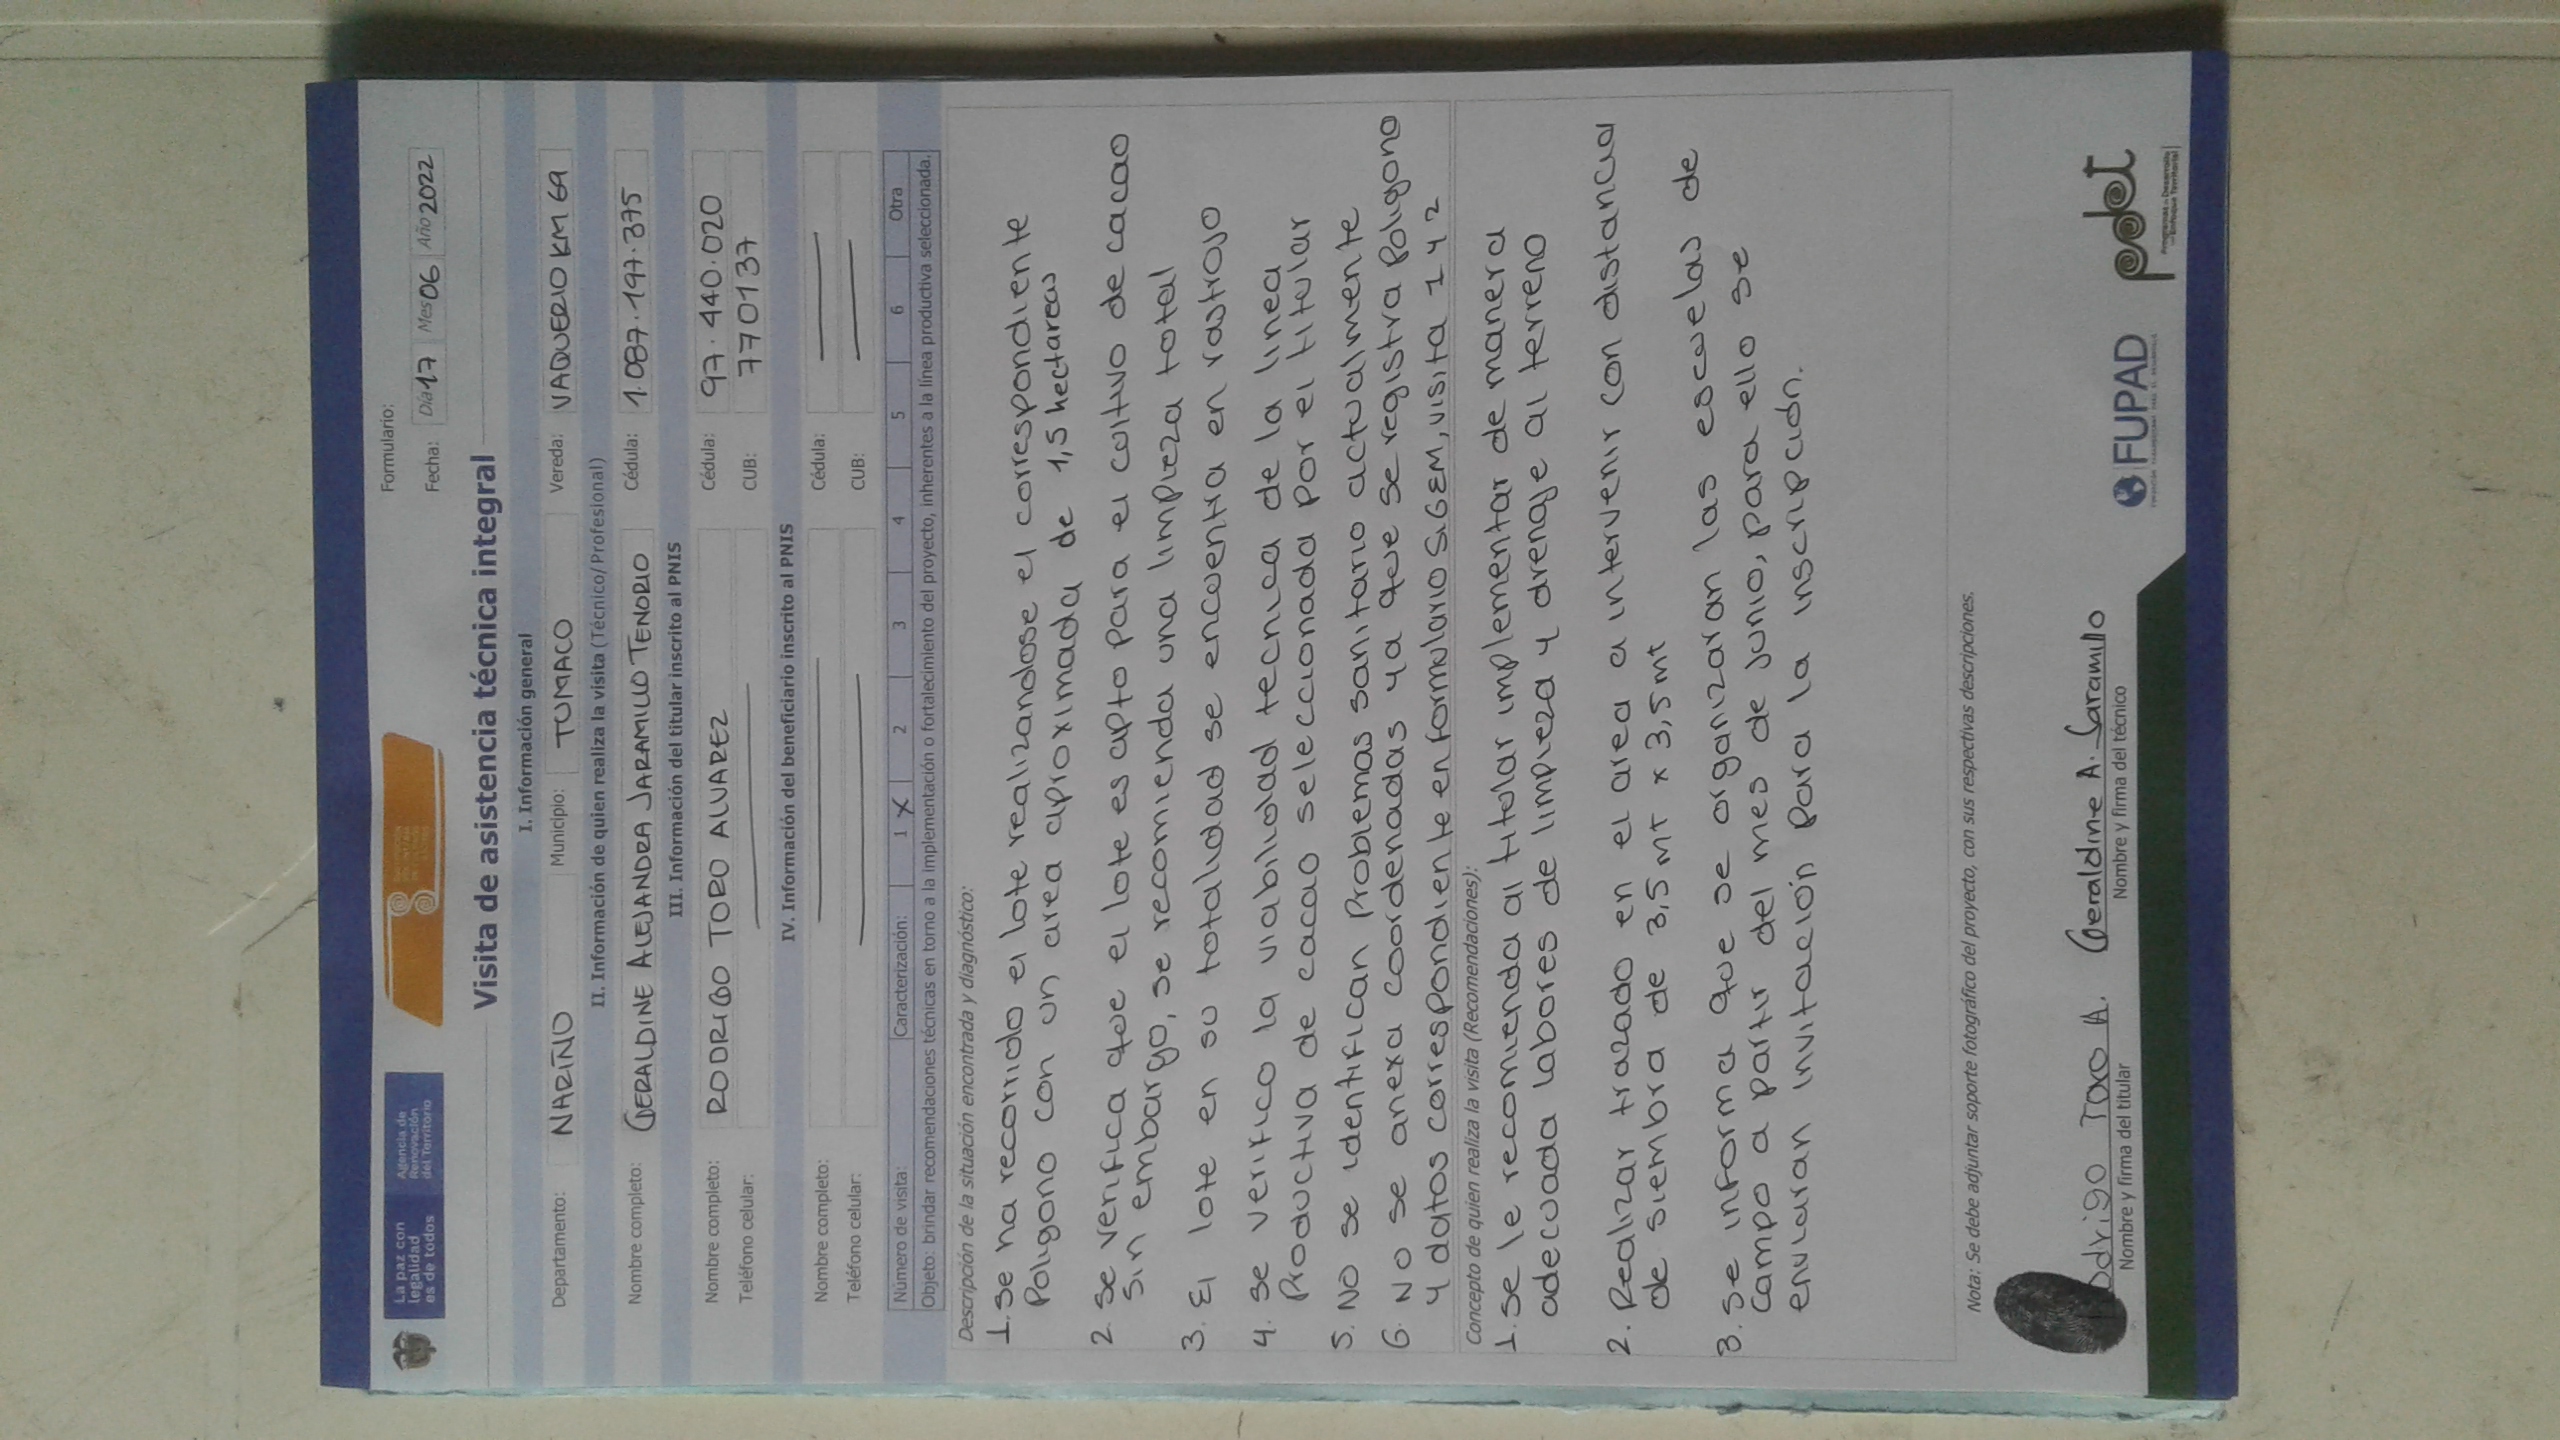 La paz con
legalidad
es de todos
Agencia de
Renovación
del Territorio
Formulario:
Fecha: Día 17 Mes 06 Año 2022
Visita de asistencia técnica integral
I. Información general
Departamento: NARIÑO Municipio: TUMACO Vereda: VAQUERIO KM 69
II. Información de quien realiza la visita (Técnico/Profesional)
Nombre completo: GERALDINE ALEJANDRA JARAMILLO TENORIO Cédula: 1.087.197.375
III. Información del titular inscrito al PNIS
Nombre completo: RODRIGO TORO ALVAREZ Cédula: 97.440.020
Teléfono celular: CUB: 7701137
IV. Información del beneficiario inscrito al PNIS
Nombre completo: Cédula:
Teléfono celular: CUB:
Número de visita: Caracterización: 1 X 2 3 4 5 6 Otra
Objeto: brindar recomendaciones técnicas en torno a la implementación o fortalecimiento del proyecto, inherentes a la línea productiva seleccionada.
Descripción de la situación encontrada y diagnóstico:
1. se ha recorrido el lote realizandose el correspondiente
Poligono con un area aproximada de 1,5 hectareas
2. se verifica que el lote es apto para el cultivo de cacao
sin embargo, se recomienda una limpieza total
3. El lote en su totalidad se encuentra en rastrojo
4. se verifico la viabilidad tecnica de la linea
Productiva de cacao seleccionada por el titular
5. No se identifican Problemas sanitario actualmente
6. No se anexa coordenadas ya que se registra Poligono
y datos correspondiente en formulario SIGEM, visita 1 y 2
Concepto de quien realiza la visita (Recomendaciones):
1. se le recomienda al titular implementar de manera
adecuada labores de limpieza y drenaje al terreno
2. Realizar trazado en el area a intervenir con distancia
de siembra de 3,5 mt x 3,5 mt
3. se informa que se organizaran las escuelas de
campo a partir del mes de junio, para ello se
enviaran invitación para la inscripción.
Nota: Se debe adjuntar soporte fotográfico del proyecto, con sus respectivas descripciones.
Rodrigo Toro A. Geraldine A. Jaramillo
Nombre y firma del titular Nombre y firma del técnico
FUPAD
pdet
Programas de Desarrollo
con Enfoque Territorial